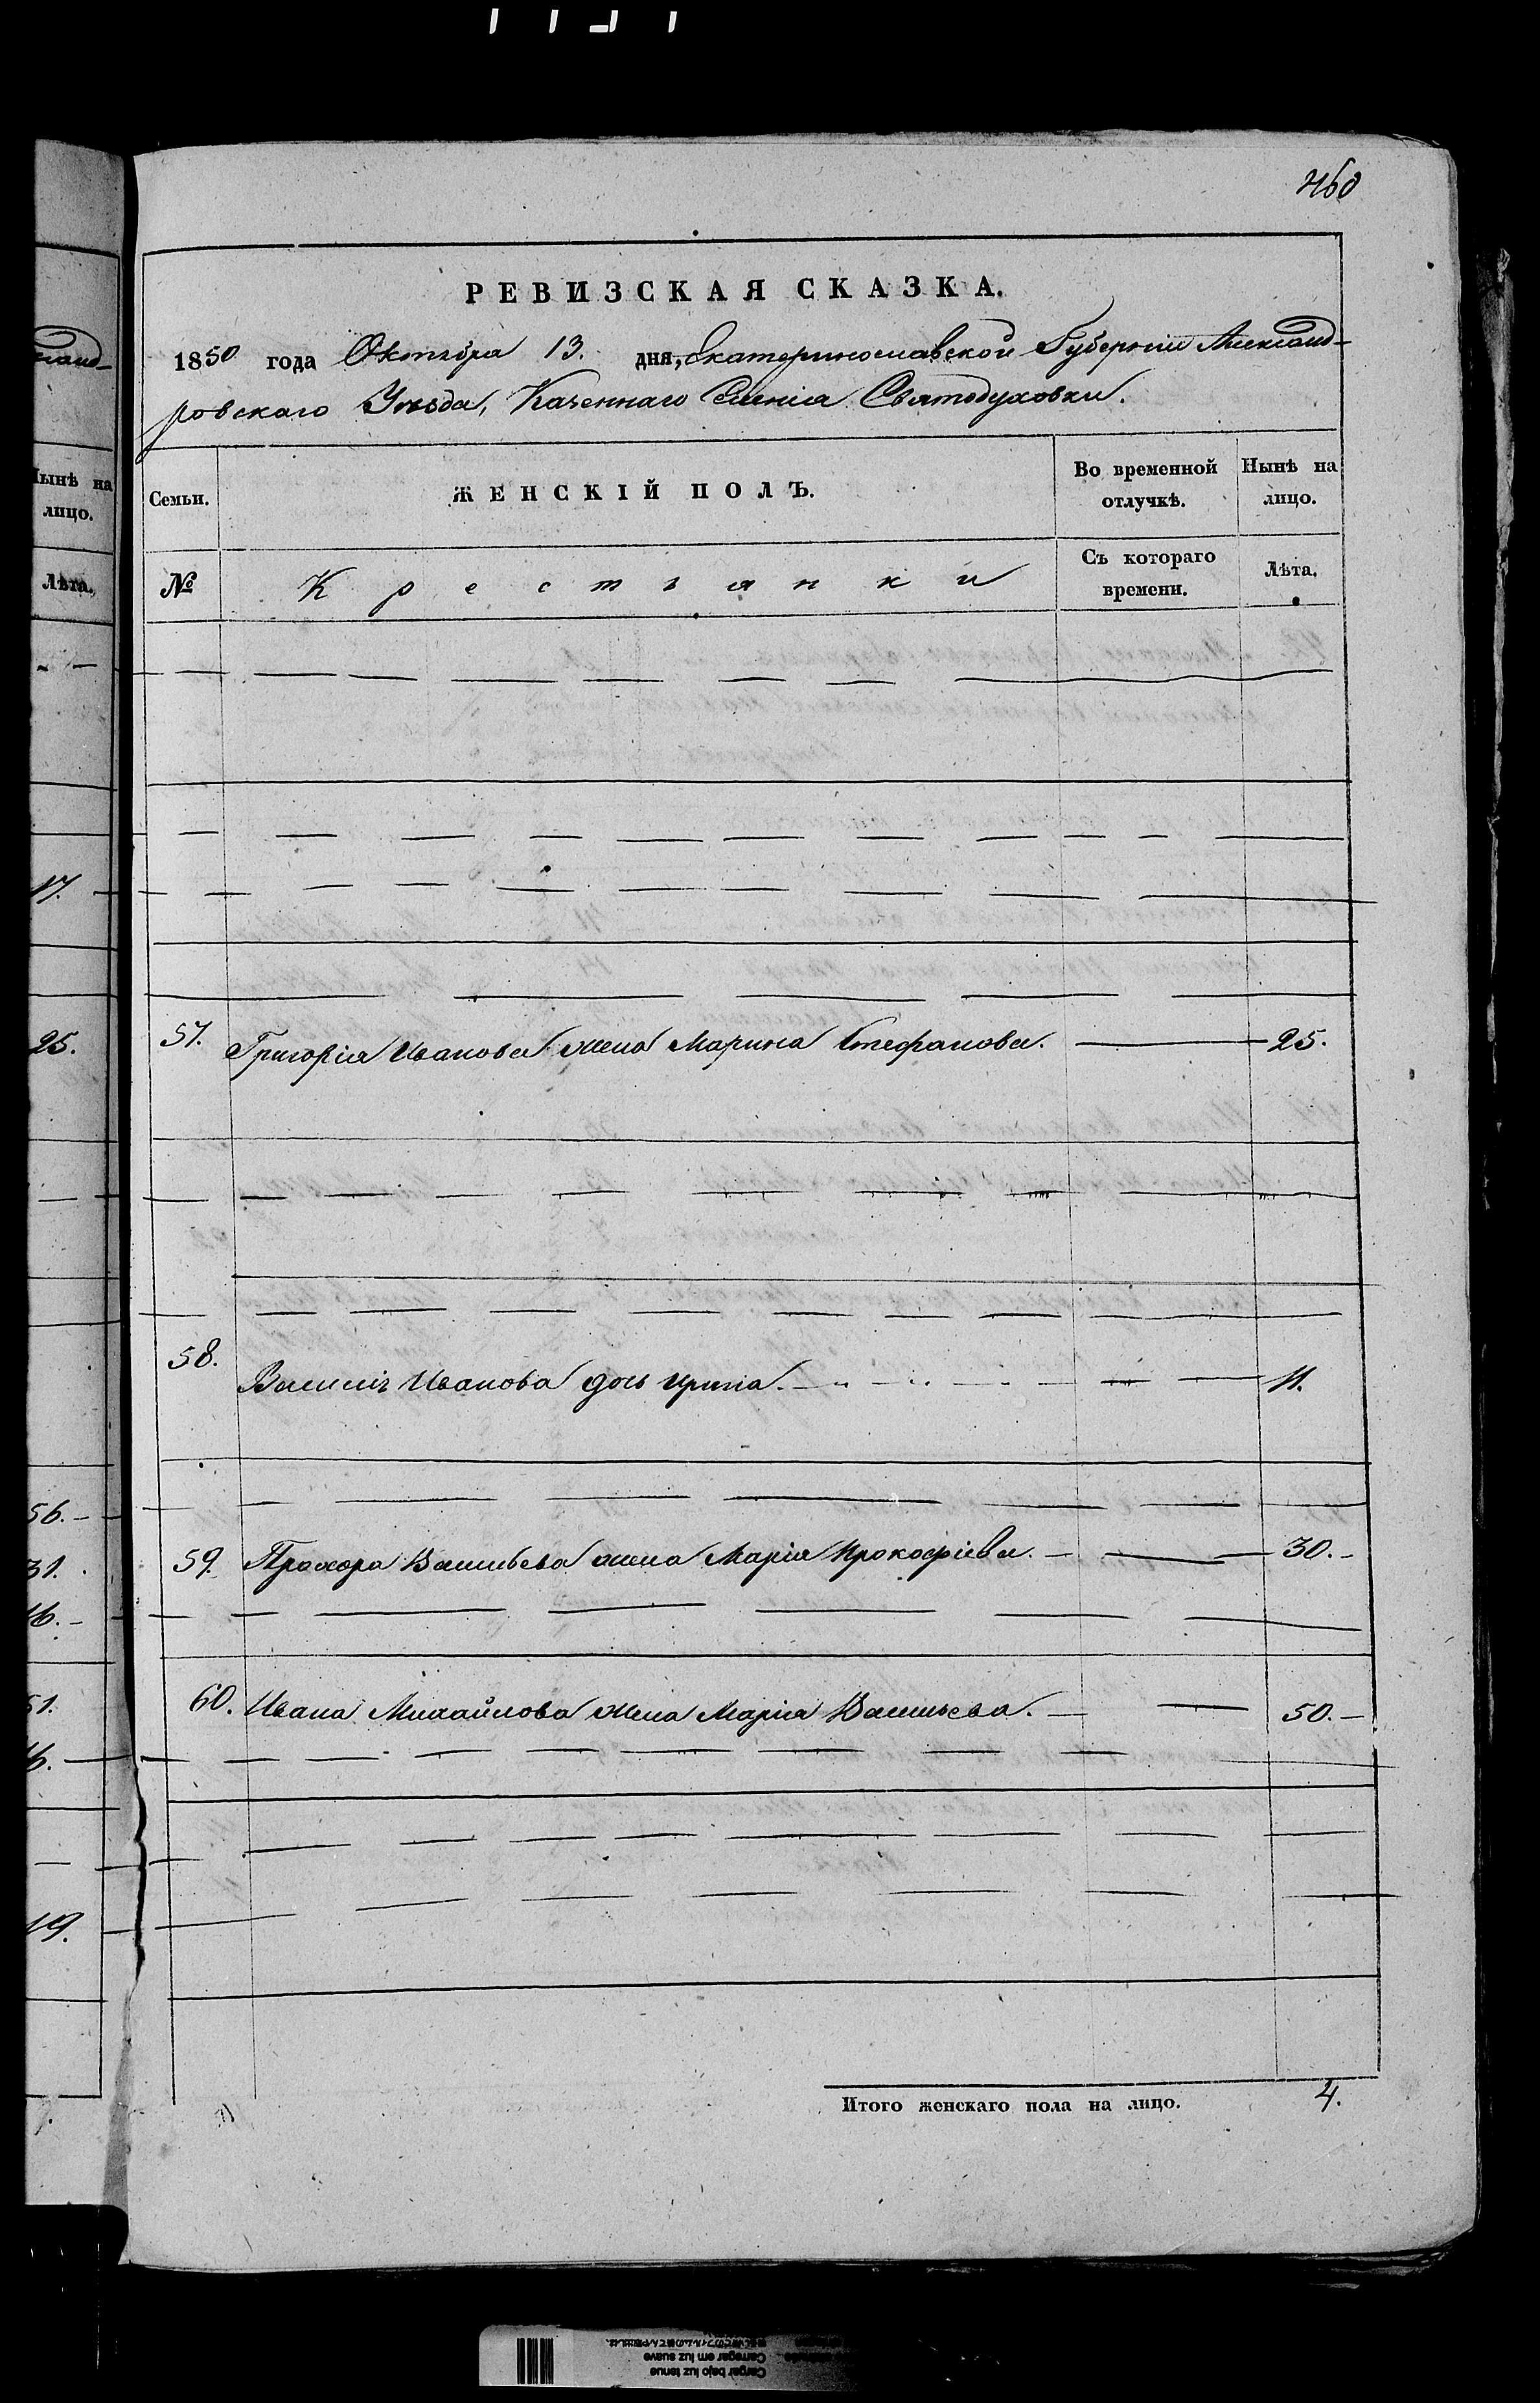 460
РЕВИЗСКАЯ СКАЗКА.
1850 года Октября 13. дня, Екатеринославской Губернии Александ-
ровскаго Уѣзда, Казеннаго Селенія Святодуховки.
Семьи.
ЖЕНСКІЙ ПОЛЪ.
Во временной отлучкѣ.
Нынѣ на лицо.
№
Крестьянки
Съ котораго времени.
Лѣта.
57. Григорія Иванова жена Марина Стефанова. 25.
58. Василія Иванова дочь Ирина. 11.
59. Прохора Васильева жена Марія Прокофіева. 30.
60. Ивана Михайлова жена Марія Васильева. 50.
Итого женскаго пола на лицо. 4.
ксанд-
Нынѣ на
лицо.
Лѣта.
17.
25.
56.
31.
16.
51.
19.
Cargar bajo luz tenue
Carregar em luz suave